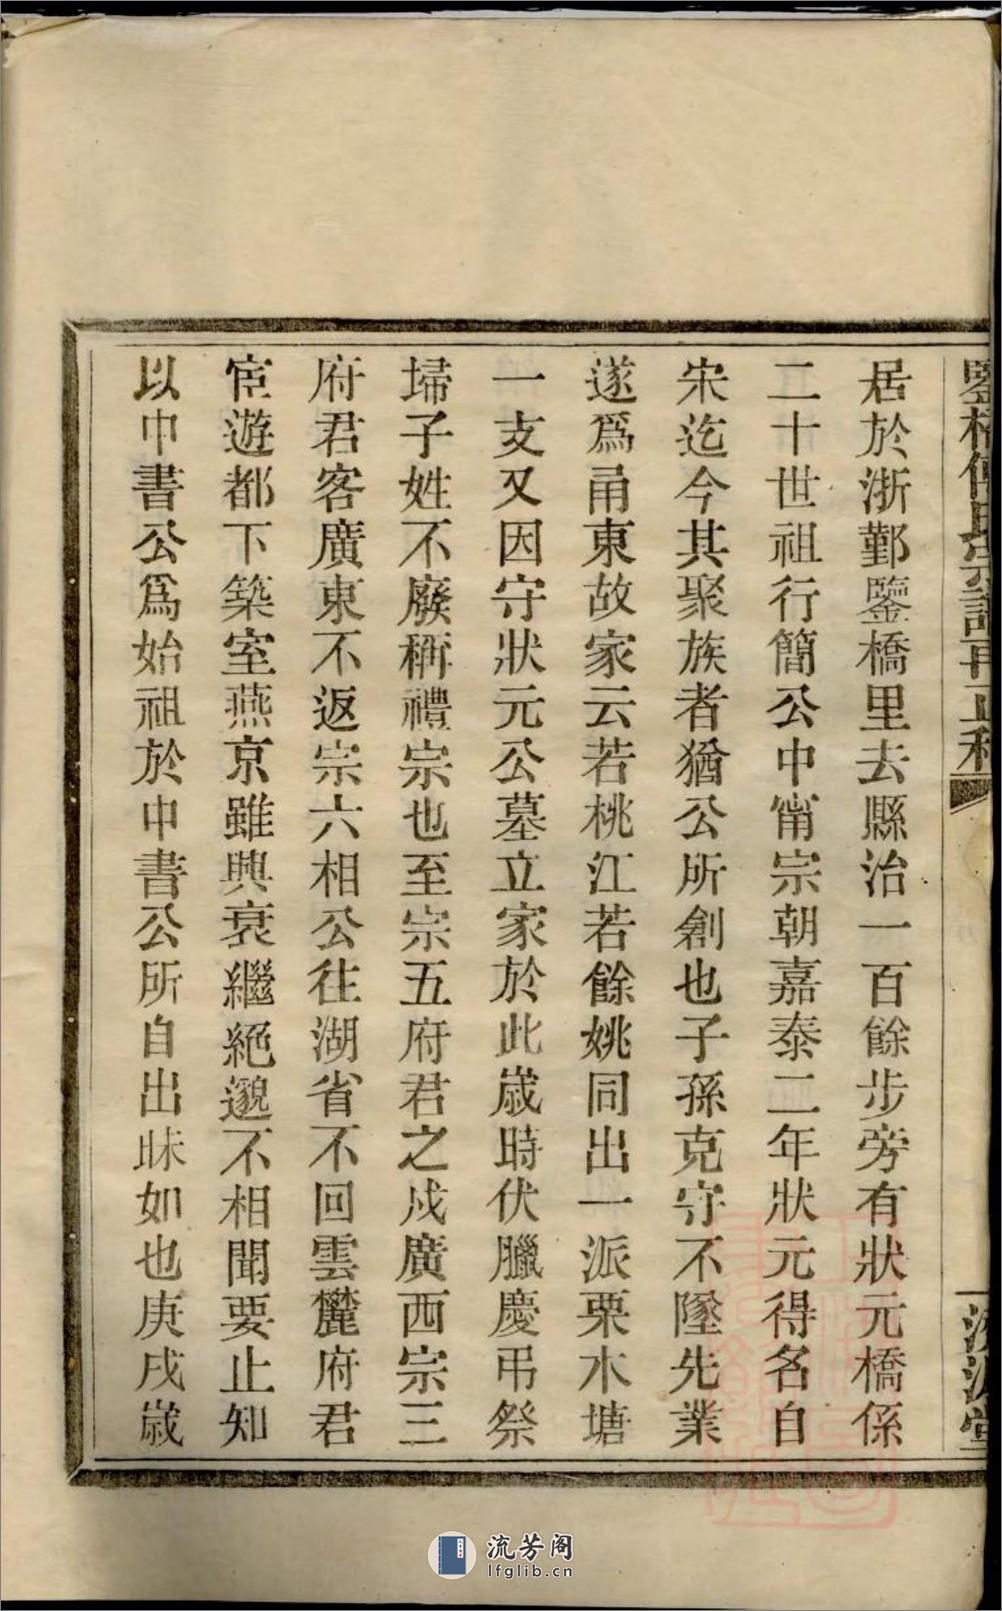 居於浙鄞鑒橋里去縣治一百餘步旁有狀元橋係
二十世祖行簡公中甯宗朝嘉泰二年狀元得名自
宋迄今其聚族者猶公所創也子孫克守不墜先業
遂爲甬東故家云若桃江若餘姚同出一派栗木塘
一支又因守狀元公墓立家於此歲時伏臘慶弔祭
埽子姓不廢稱禮宗也至宗五府君之戍廣西宗三
府君客廣東不返宗六相公往湖省不回雲麓府君
宦遊都下築室燕京雖興衰繼絕邈不相聞要止知
以中書公爲始祖於中書公所自出昧如也庚戌歲
流芳阁
lfglib.cn